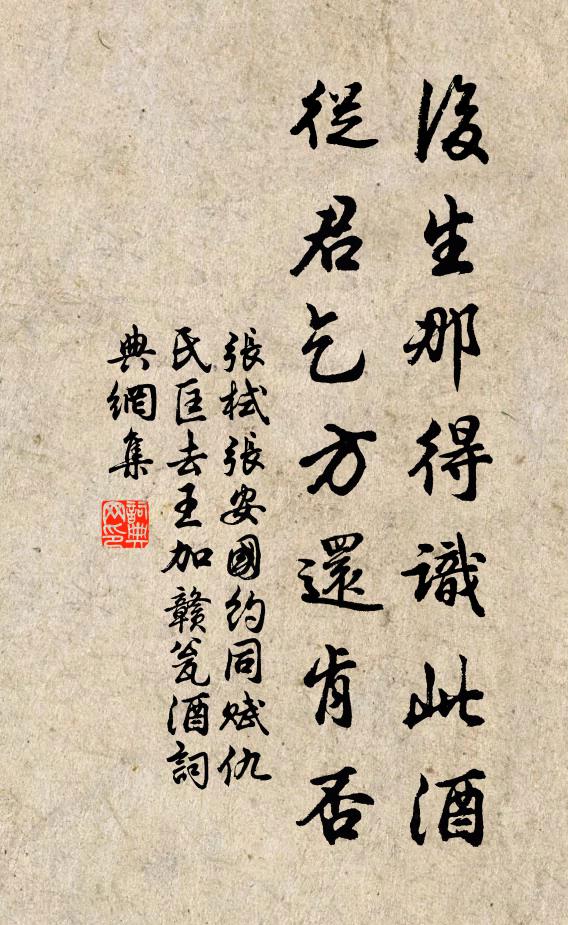 後生那得識此酒
從君乞方還肯否
張栻張安國約同賦仇
氏匡去王加贛瓮酒詞
典網集
詞典
网印